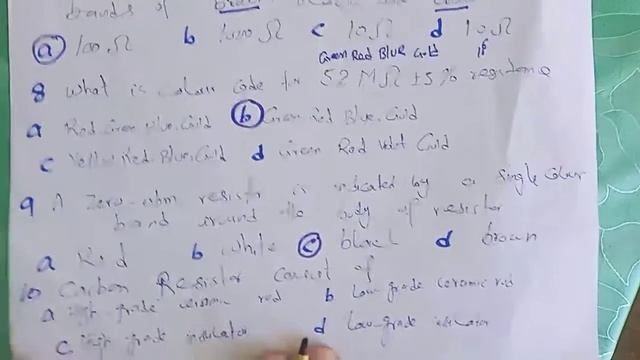 bands of brown black and
a 100 Ω b 1000 Ω c 10 Ω d 1.0 Ω
Green Red Blue Gold
8 What is colour code for 52 MΩ ±5% resistance
a Red Green Blue Gold b Green Red Blue Gold
c Yellow Red Blue Gold d Green Red Violet Gold
9 A Zero-ohm resistor is indicated by a single colour
band around the body of resistor
a Red b white c black d brown
10 Carbon Resistor consist of
a high grade ceramic rod b low-grade ceramic rod
c high grade insulator d low-grade insulator